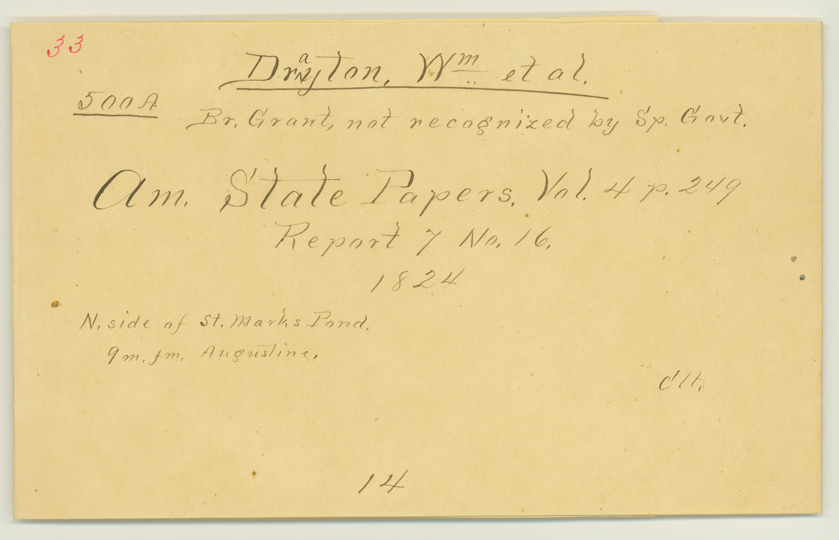 33
Drayton, Wm et al.
500 A
Br. Grant, not recognized by Sp. Govt.
Am. State Papers. Vol. 4 p. 249
Report 7 No. 16.
1824
N. side of St. Marks Pond.
9 m. fm. Augustine.
14